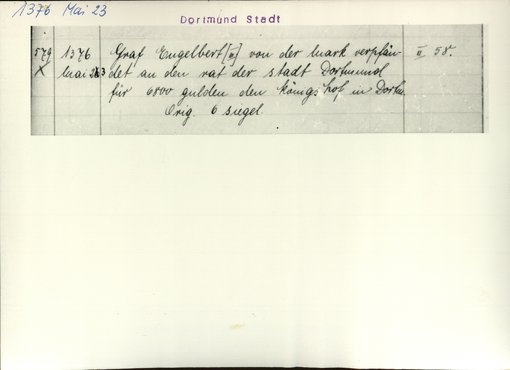 1376 Mai 23
Dortmund Stadt
579 1376 Graf Engelbert [II] von der Mark verpfän- II 58.
X Mai 23 det an den rat der stadt Dortmund
für 6800 gulden den königshof in Dortm.
Orig. 6 siegel.